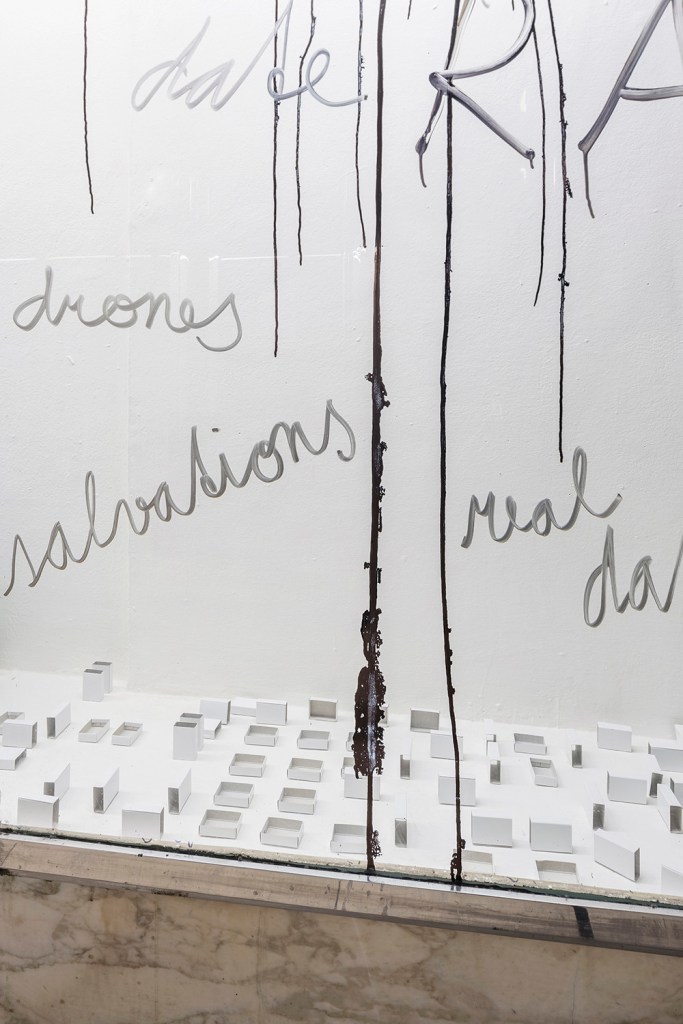 date RA
drones
salvations
real
da